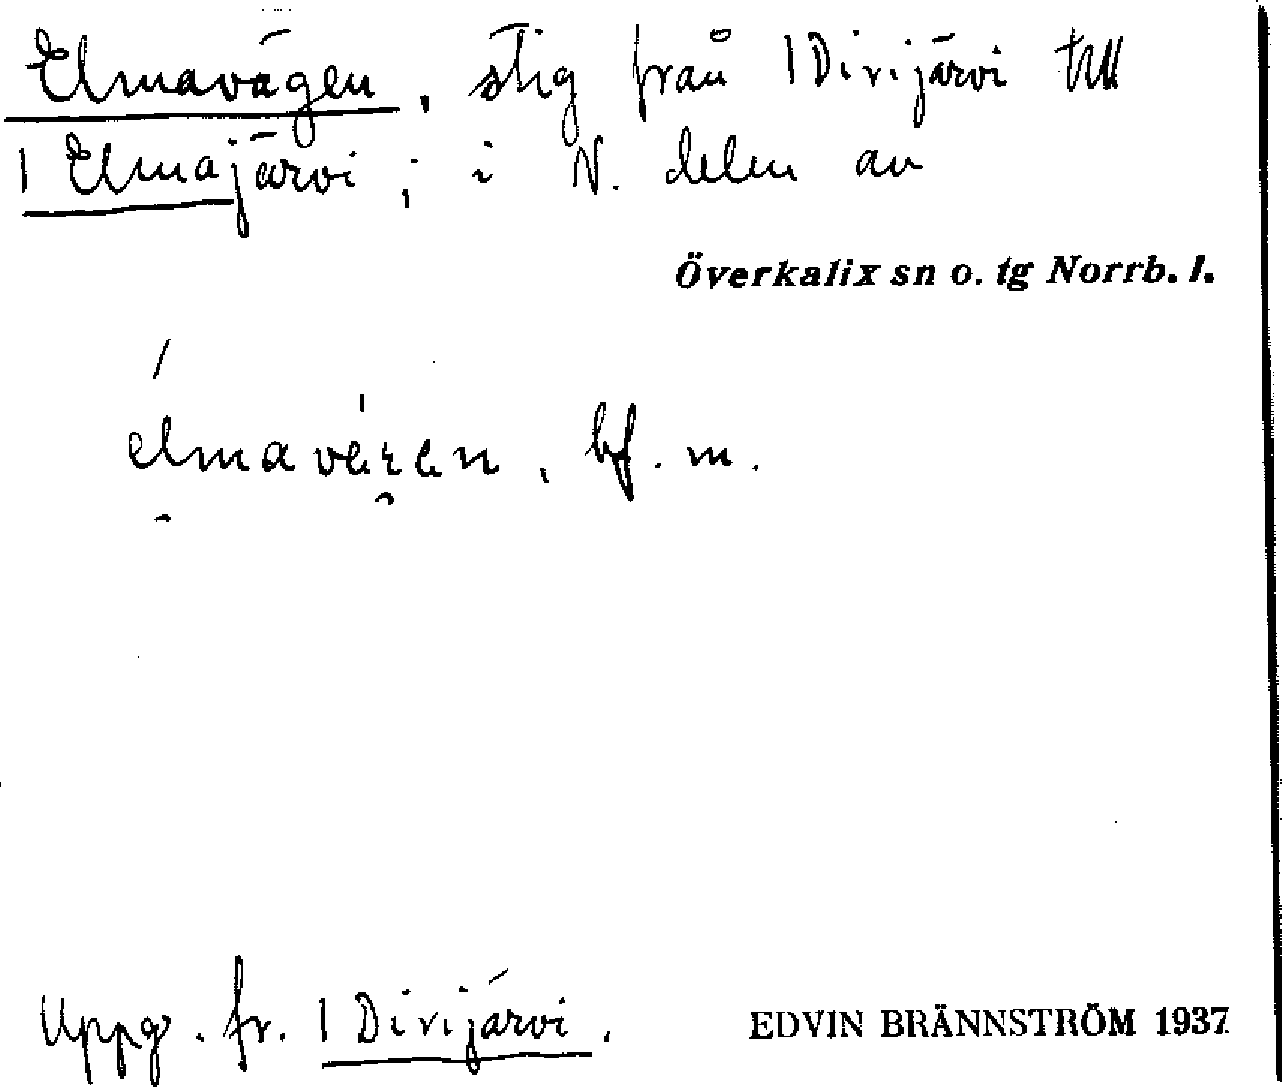 Elmavägen, stig från 1 Divijärvi till
1 Elmajärvi; i N. delen av
Överkalix sn o. tg Norrb. l.
élmavéṛen, bf. m.
Uppg. fr. 1 Divijärvi.
EDVIN BRÄNNSTRÖM 1937